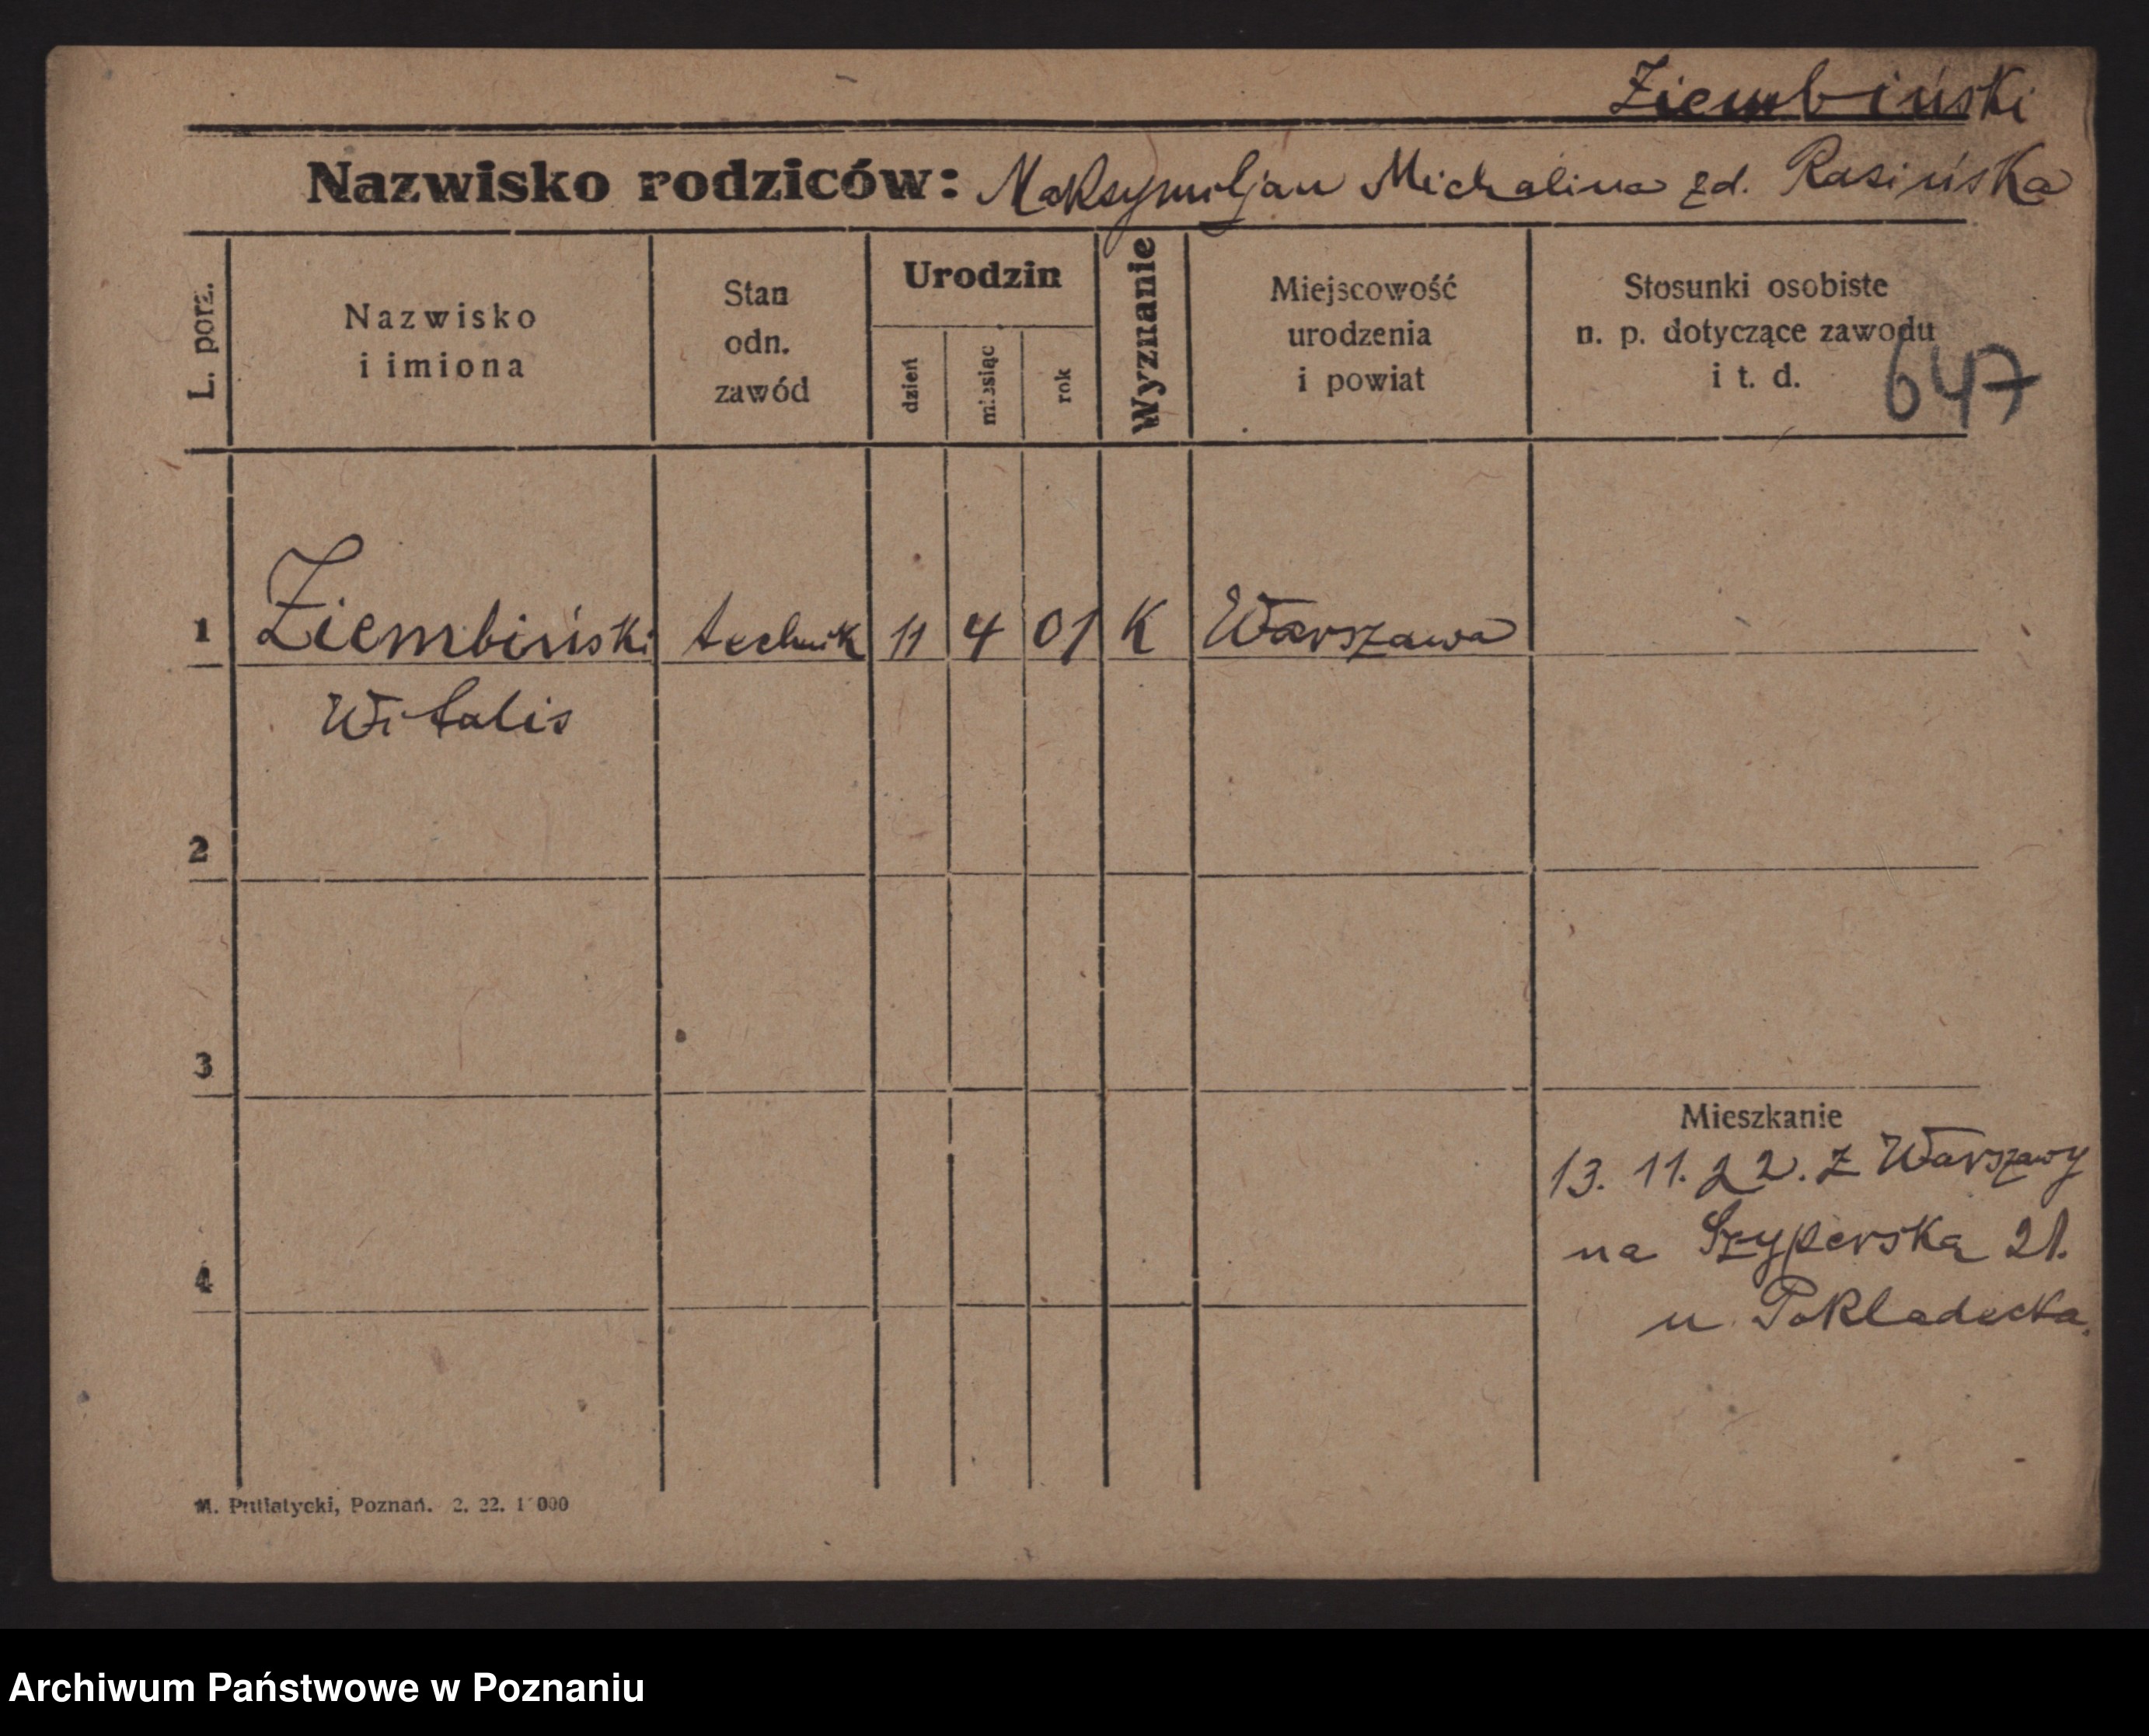 Ziembiński
Nazwisko rodziców: Maksymiljan Michalina zd. Rasińska
L. porz.
Nazwisko
i imiona
Stan
odn.
zawód
Urodzin
dzień
miesiąc
rok
Wyznanie
Miejscowość
urodzenia
i powiat
Stosunki osobiste
n. p. dotyczące zawodu
i t. d.
647
1 Ziembiński technik 11 4 01 K Warszawa
Witalis
2
3
Mieszkanie
13. 11. 22. z Warszawy
na Szyperską 21.
4
u Pokladecka.
M. Putiatycki, Poznań. 2. 22. 1 000
Archiwum Państwowe w Poznaniu